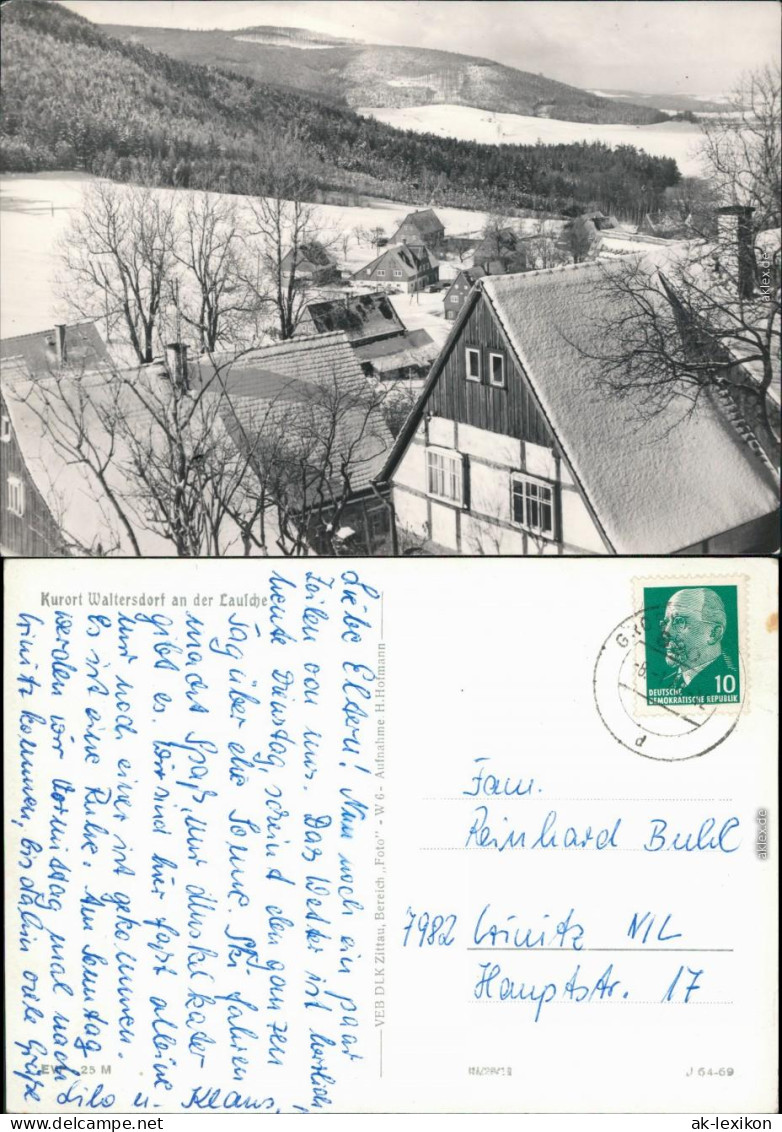 Kurort Waltersdorf an der Lausche
Liebe Eltern! Nun noch ein paar
Zeilen von uns. Das Wetter ist herrlich,
heute Dienstag, scheint den ganzen
Tag über die Sonne. Ski fahren
macht Spaß, nur Muskelkater
gibt es. Wir sind hier fast alleine
nur noch einer ist gekommen.
Es ist eine Ruhe. Am Sonntag
werden wir Vormittag mal nach
Crinitz kommen, bis dahin viele Grüße
Lilo u. Klaus.
EVP -,25 M
VEB DLK Zittau, Bereich „Foto" - W 6 - Aufnahme H. Hofmann
DEUTSCHE
DEMOKRATISCHE REPUBLIK
10
Fam.
Reinhard Buhl
7982 Crinitz N/L
Hauptstr. 17
J 64-69
aklex.de
aklex.de
ak-lexikon